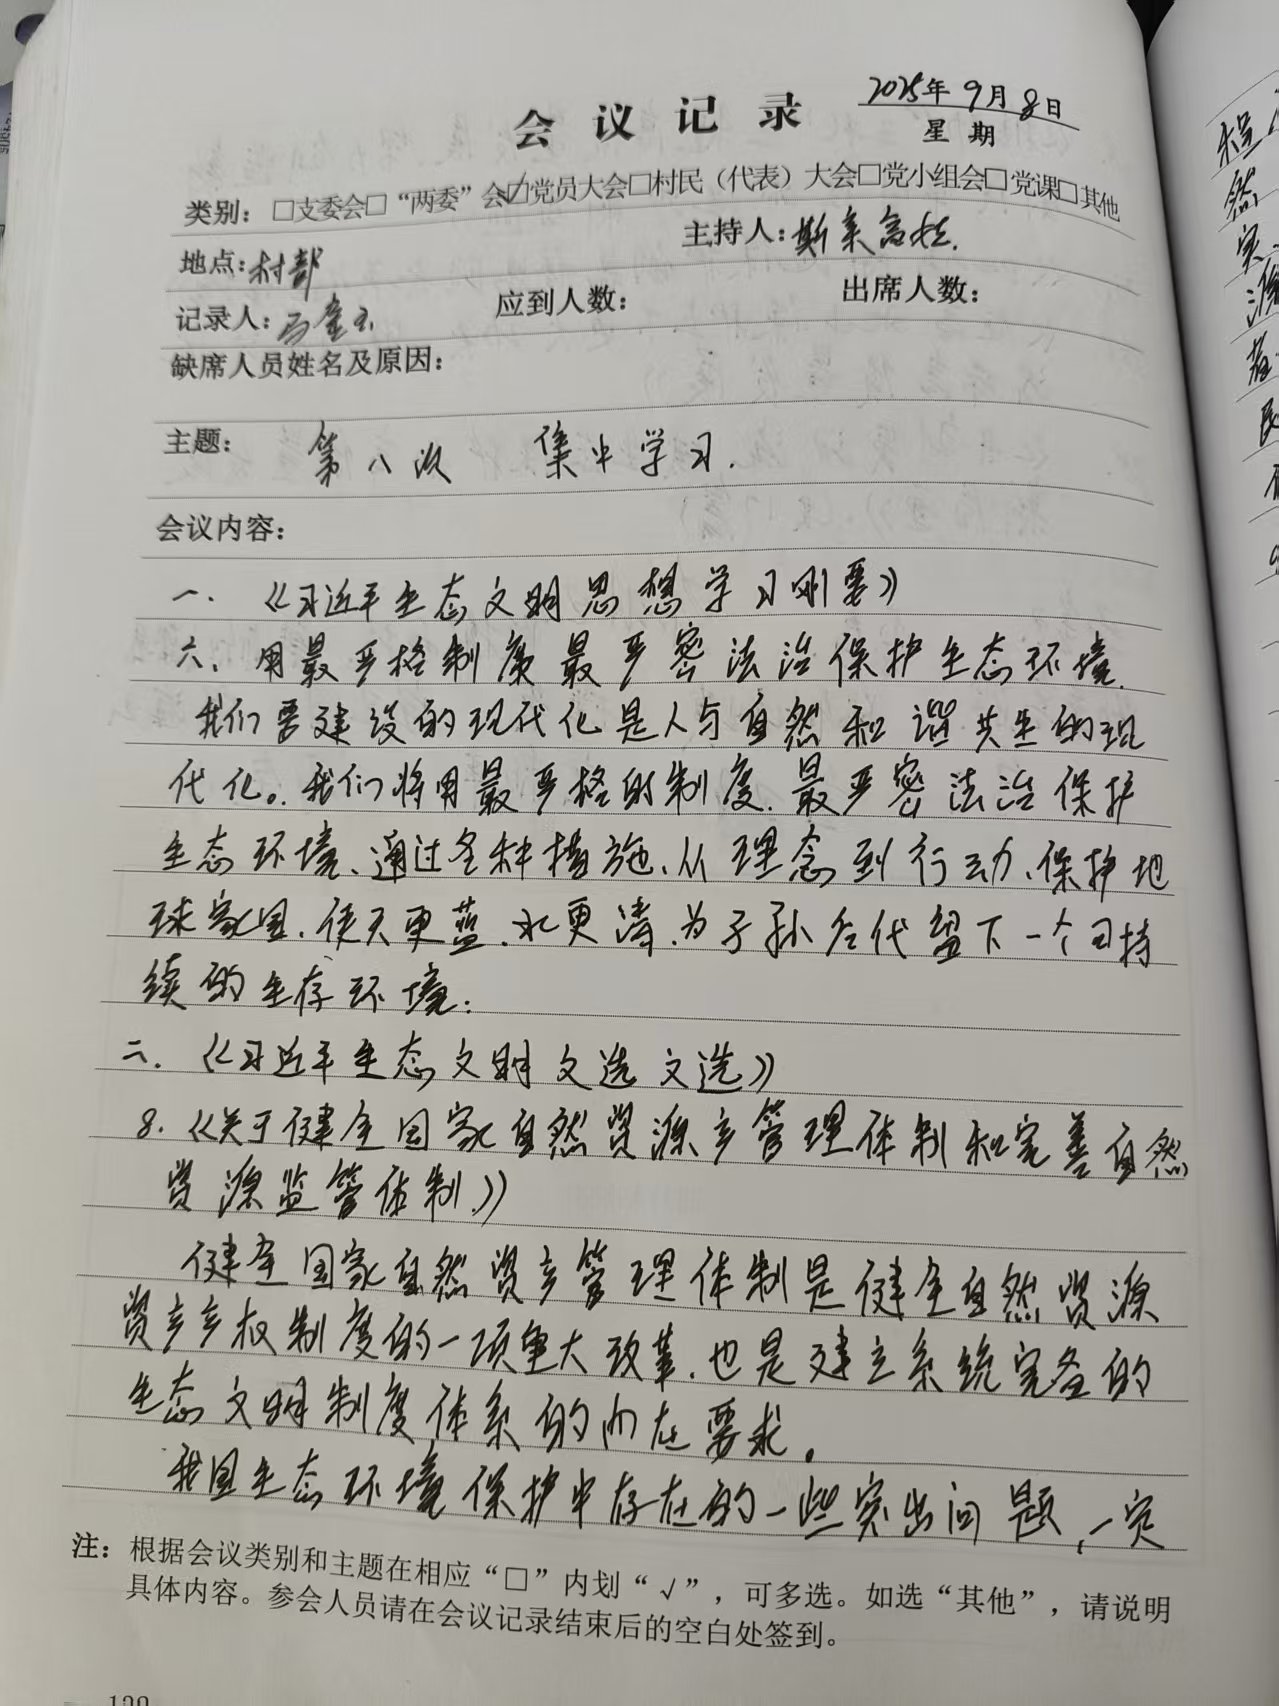 会议记录 2025年9月8日
星期
类别：□支委会□“两委”会☑党员大会□村民（代表）大会□党小组会□党课□其他
地点：村部 主持人：斯来高娃.
记录人： 应到人数： 出席人数：
缺席人员姓名及原因：
主题： 第八次 集中学习.
会议内容：
一.《习近平生态文明思想学习刚要》
六、用最严格制度最严密法治保护生态环境.
我们要建设的现代化是人与自然和谐共生的现
代化。我们将用最严格的制度.最严密法治保护
生态环境、通过各种措施、从理念到行动、保护地
球家园.使天更蓝.水更清.为子孙后代留下一个可持
续的生存环境.
二.《习近平生态文明文选文选》
8.《关于健全国家自然资源产管理体制和完善自然
资源监管体制》
健全国家自然资产管理体制是健全自然资源
资产产权制度的一项重大改革.也是建立系统完备的
生态文明制度体系的内在要求。
我国生态环境保护中存在的一些突出问题,一定
注：根据会议类别和主题在相应“□”内划“√”，可多选。如选“其他”，请说明
具体内容。参会人员请在会议记录结束后的空白处签到。